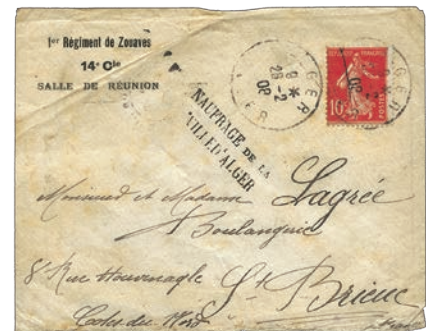 1er Régiment de Zouaves
14e Cie
SALLE DE RÉUNION
ALGER
8 *
28-2
08
ALGER
10
POSTES
NAUFRAGE DE LA
VILLE D'ALGER
Monsieur et Madame Lagrée
Boulangerie
8 Rue Houvenagle St Brieuc
Cotes du Nord